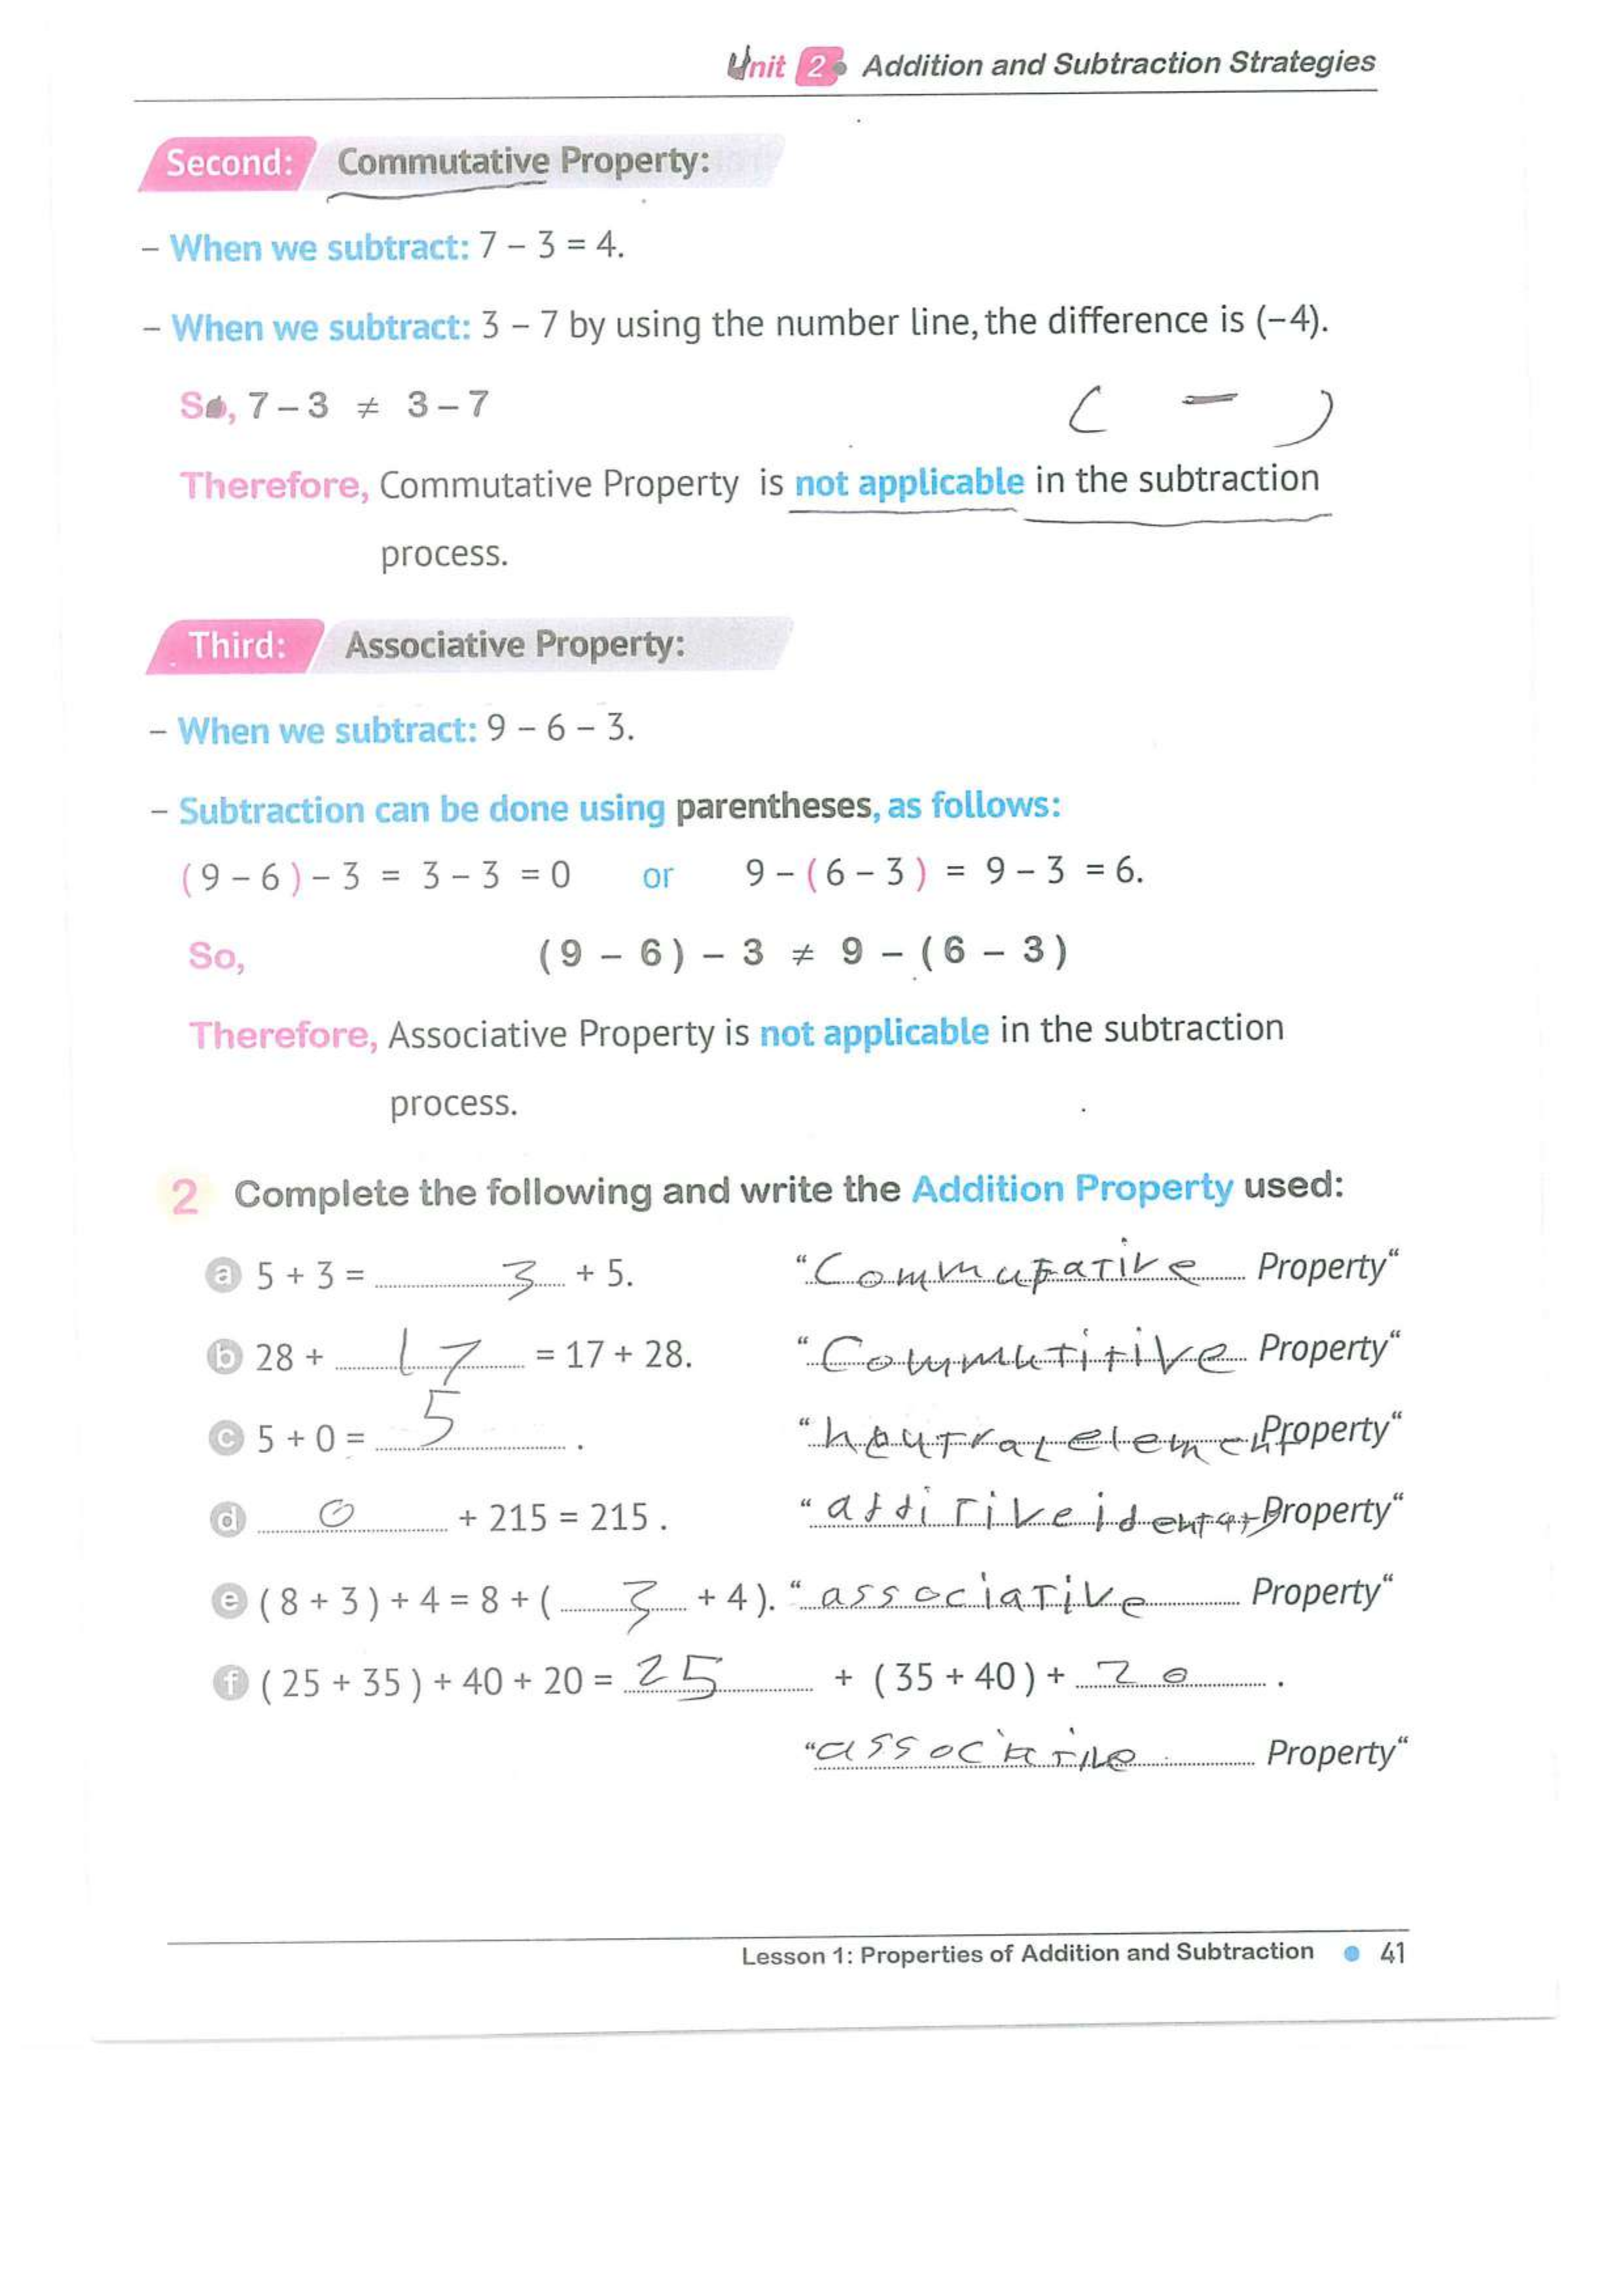 Unit 2 • Addition and Subtraction Strategies
Second: Commutative Property:
– When we subtract: 7 – 3 = 4.
– When we subtract: 3 – 7 by using the number line, the difference is (–4).
So, 7 – 3 ≠ 3 – 7
( – )
Therefore, Commutative Property is not applicable in the subtraction
process.
Third: Associative Property:
– When we subtract: 9 – 6 – 3.
– Subtraction can be done using parentheses, as follows:
(9 – 6) – 3 = 3 – 3 = 0 or 9 – (6 – 3) = 9 – 3 = 6.
So, (9 – 6) – 3 ≠ 9 – (6 – 3)
Therefore, Associative Property is not applicable in the subtraction
process.
2 Complete the following and write the Addition Property used:
a 5 + 3 = 3 + 5. "Commutative Property"
b 28 + 17 = 17 + 28. "Commutitive Property"
c 5 + 0 = 5. "neutral element Property"
d 0 + 215 = 215. "additive Property"
e (8 + 3) + 4 = 8 + (3 + 4). "associative Property"
f (25 + 35) + 40 + 20 = 25 + (35 + 40) + 20.
"associative Property"
Lesson 1: Properties of Addition and Subtraction • 41